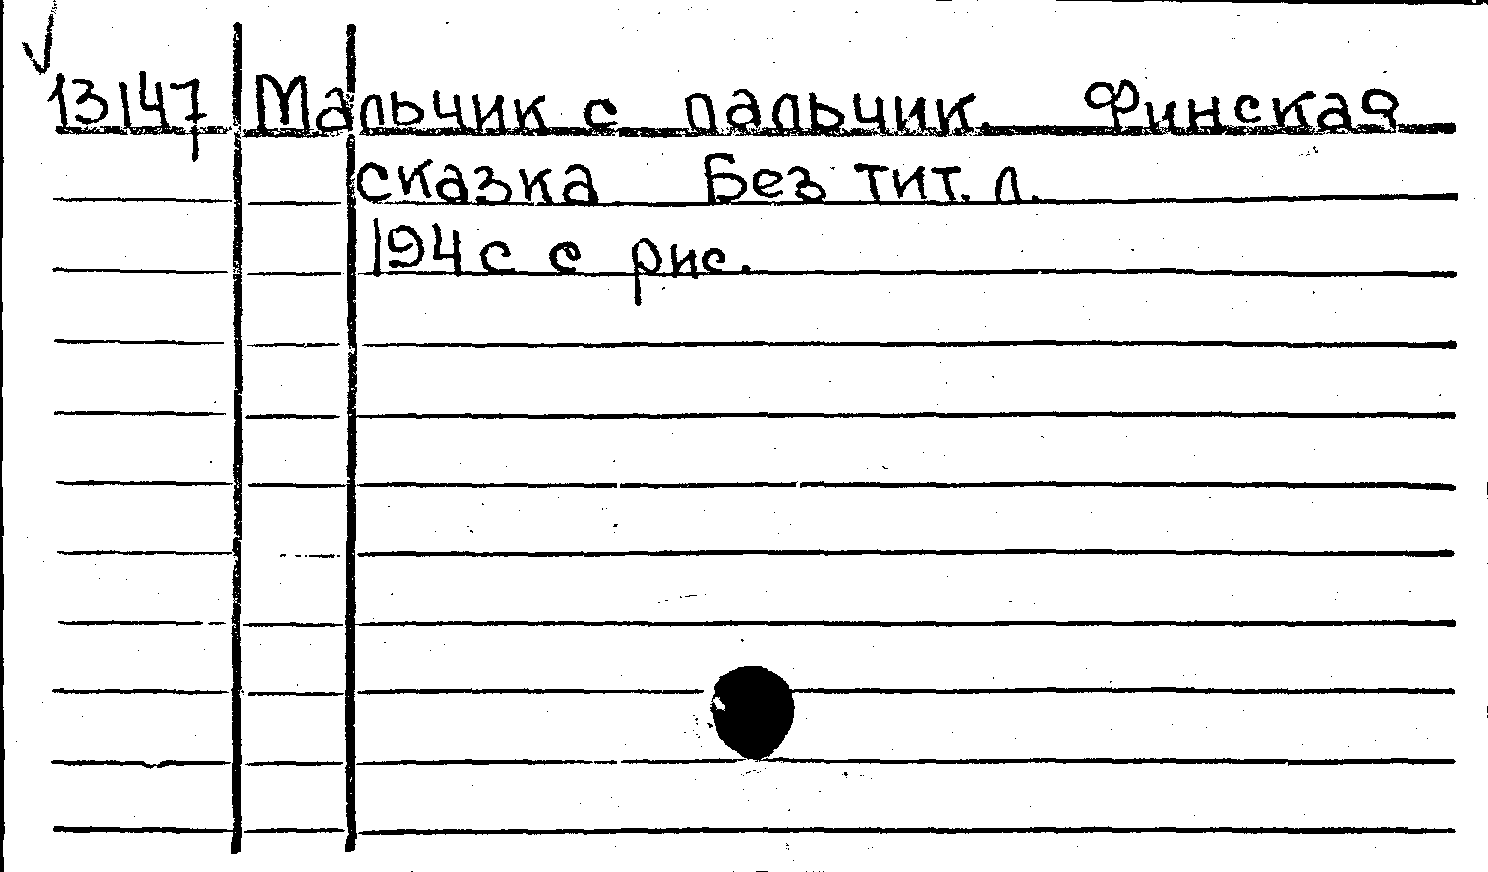 13147 Мальчик с пальчик. Финская
сказка Без тит. л.
194 с с рис.